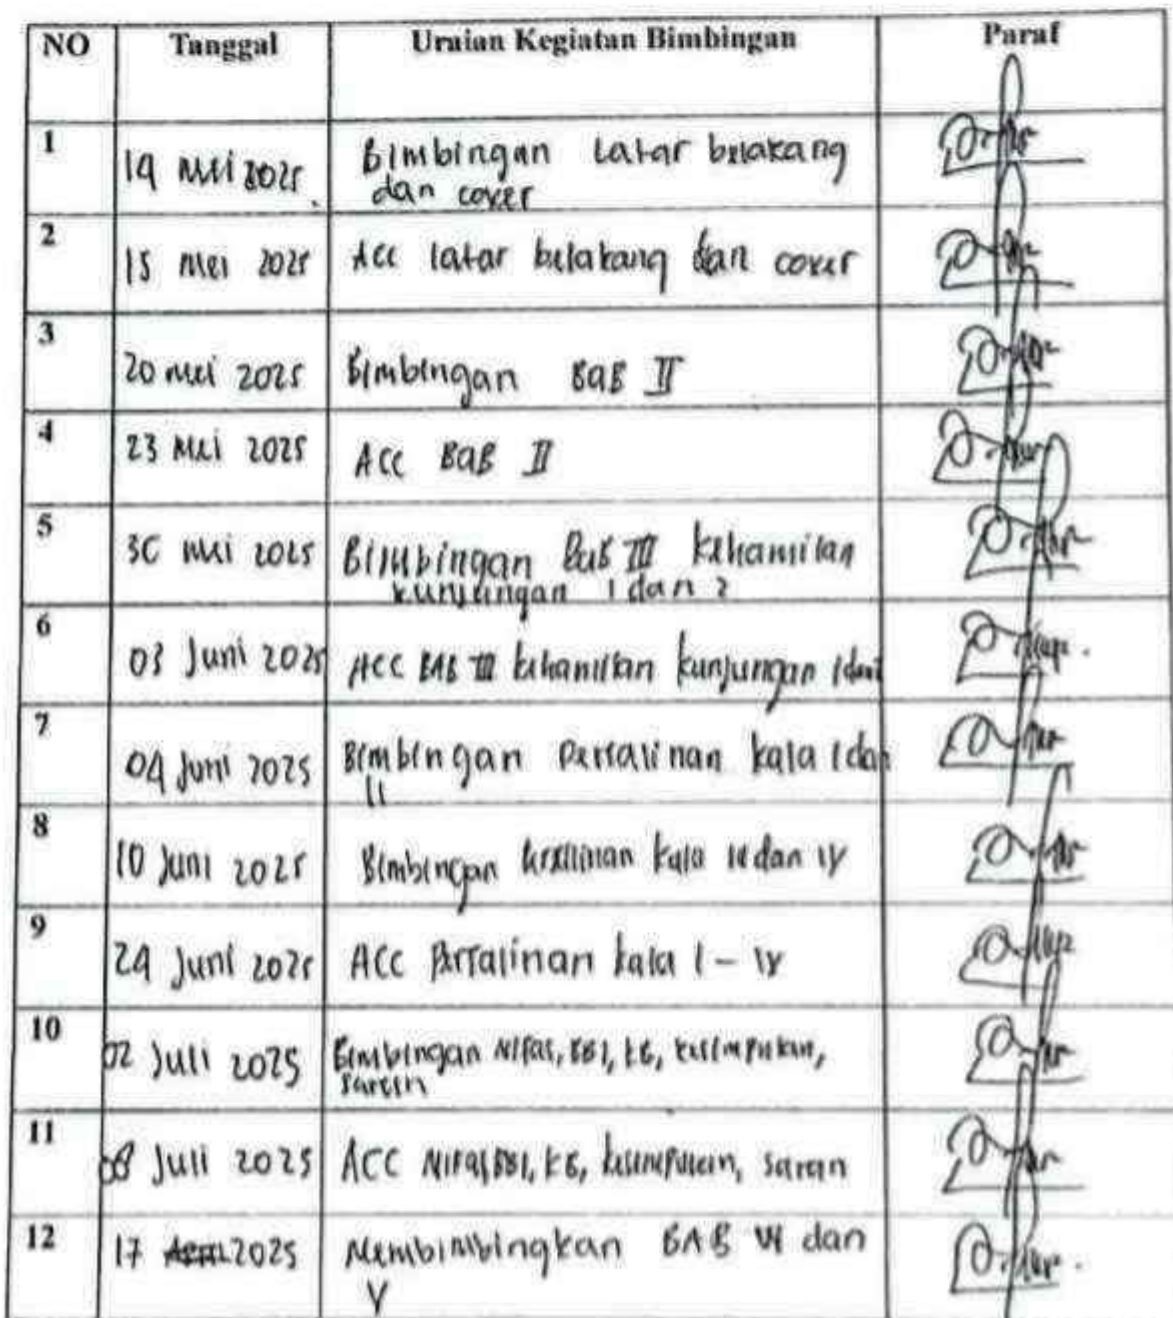 NO Tanggal Uraian Kegiatan Bimbingan Paraf
1 14 Mei 2025 Bimbingan Latar belakang
dan cover
2 15 Mei 2025 Acc latar belakang dan cover
3 20 Mei 2025 Bimbingan BaB II
4 23 Mei 2025 Acc BaB II
5 30 Mei 2025 Bimbingan BaB III kehamilan
kunjungan 1 dan 2
6 03 Juni 2025 Acc BAB III kehamilan kunjungan 1 dan
7 04 Juni 2025 Bimbingan Persalinan kala I dan
II
8 10 Juni 2025 Bimbingan persalinan kala III dan IV
9 24 Juni 2025 Acc Persalinan kala I - IV
10 02 Juli 2025 Bimbingan Nifas, BBl, KB, kesimpulan,
saran
11 08 Juli 2025 ACC Nifas, BBl, KB, kesimpulan, saran
12 17 2025 Membimbingkan BAB VI dan
V